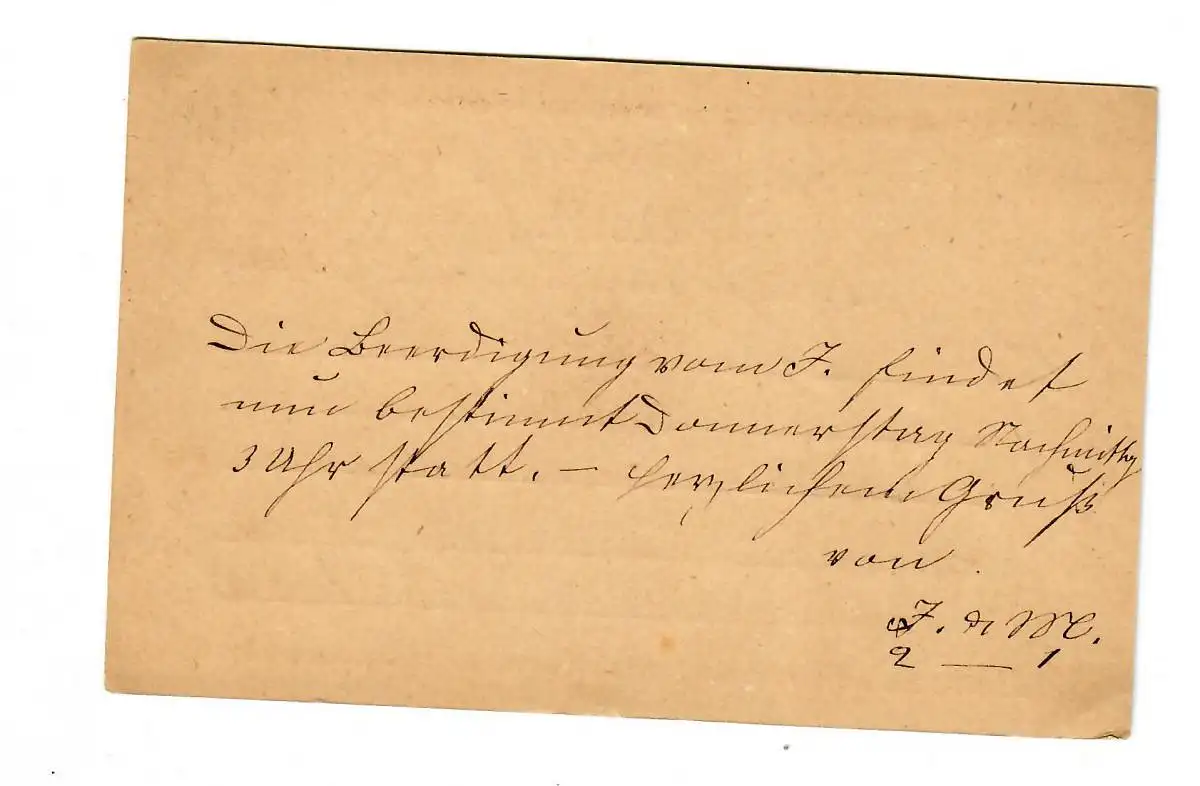 Die Beerdigung vom J. findet
nun bestimmt Donnerstag Nachmittg
3 Uhr statt. – herzlichem Gruß
von
J. & M.
2 — 1